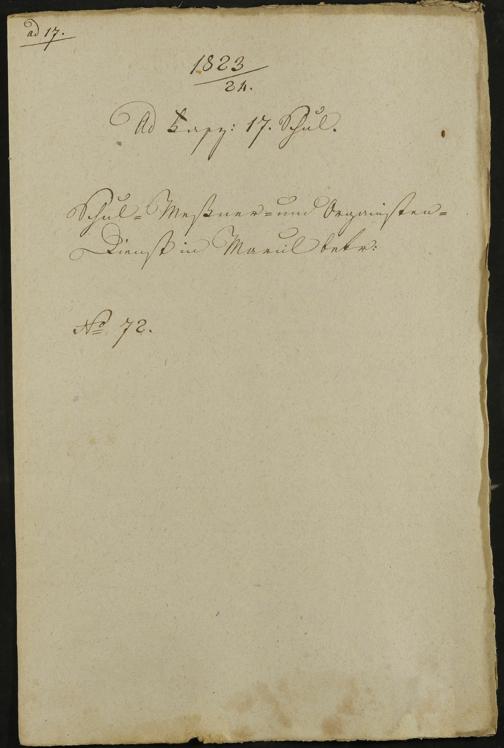 ad 17.
1823
24.
Ad Fasz: 17. Schul.
Schul= Meßner= und Organisten=
Dienst in Marul betr:
No 72.